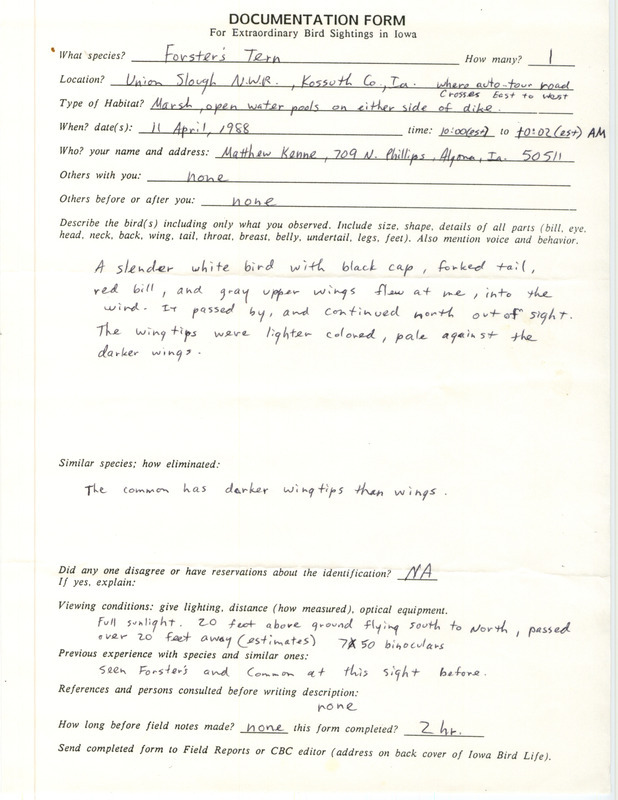 DOCUMENTATION FORM
For Extraordinary Bird Sightings in Iowa
What species? Forster's Tern How many? 1
Location? Union Slough N.W.R., Kossuth Co., Ia. where auto-tour road
crosses East to West
Type of Habitat? Marsh, open water pools on either side of dike.
When? date(s): 11 April, 1988 time: 10:00(est) to 10:02(est) AM
Who? your name and address: Matthew Kenne, 709 N. Phillips, Algona, Ia. 50511
Others with you: none
Others before or after you: none
Describe the bird(s) including only what you observed. Include size, shape, details of all parts (bill, eye,
head, neck, back, wing, tail, throat, breast, belly, undertail, legs, feet). Also mention voice and behavior.
A slender white bird with black cap, forked tail,
red bill, and gray upper wings flew at me, into the
wind. It passed by, and continued north out of sight.
The wingtips were lighter colored, pale against the
darker wings.
Similar species; how eliminated:
The common has darker wingtips than wings.
Did any one disagree or have reservations about the identification? NA
If yes, explain:
Viewing conditions: give lighting, distance (how measured), optical equipment.
Full sunlight. 20 feet above ground flying south to North, passed
over 20 feet away (estimates) 7X50 binoculars
Previous experience with species and similar ones:
Seen Forster's and Common at this sight before.
References and persons consulted before writing description:
none
How long before field notes made? none this form completed? 2 hr.
Send completed form to Field Reports or CBC editor (address on back cover of Iowa Bird Life).